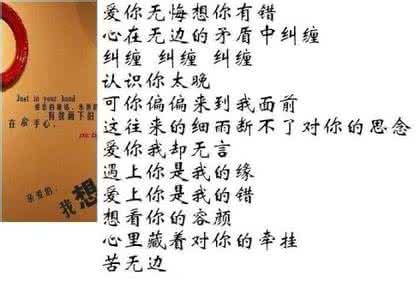 Just in your hand
在你手心,
亲爱的,
我想
爱你无悔想你有错
心在无边的矛盾中纠缠
纠缠 纠缠 纠缠
认识你太晚
可你偏偏来到我面前
这往来的细雨断不了对你的思念
爱你我却无言
遇上你是我的缘
爱上你是我的错
想看你的容颜
心里藏着对你的牵挂
苦无边